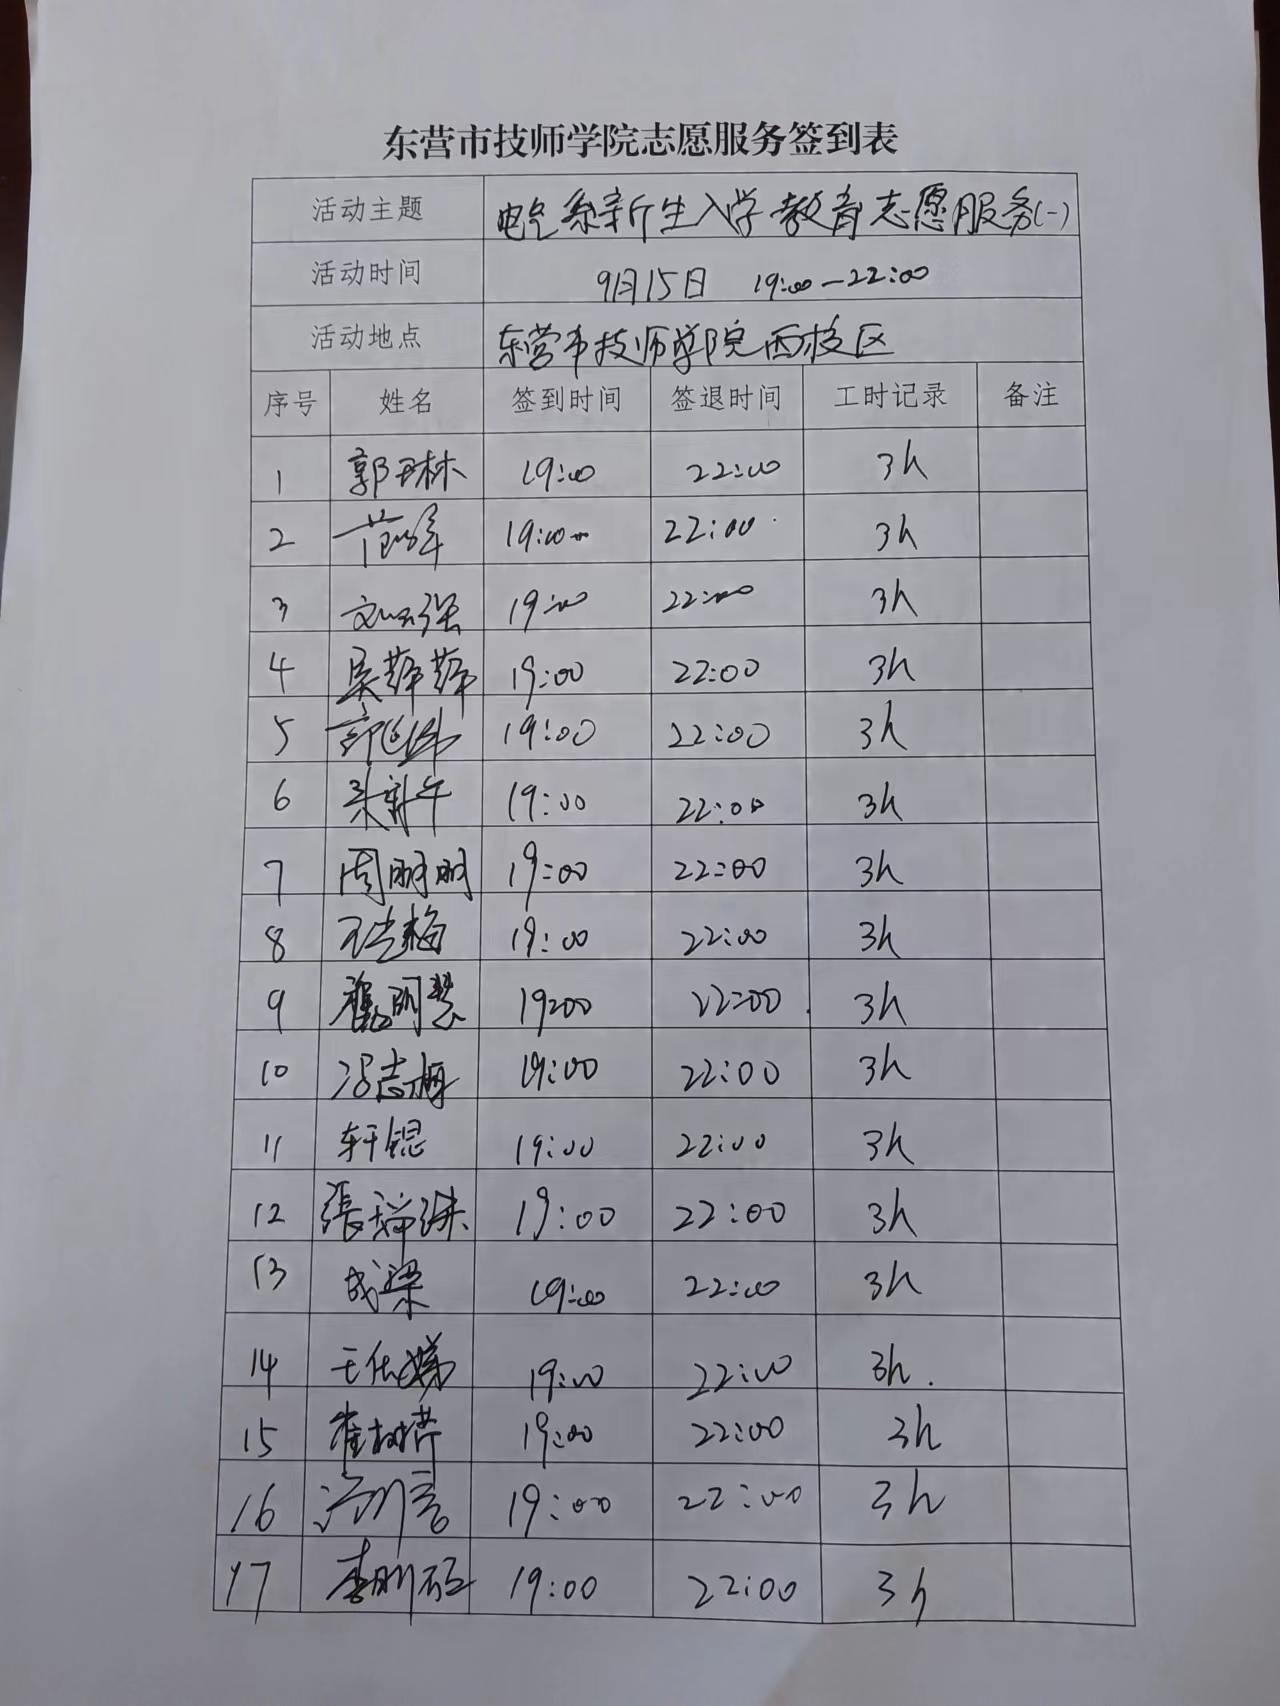 东营市技师学院志愿服务签到表
活动主题 电气系新生入学教育志愿服务(一)
活动时间 9月15日 19:00—22:00
活动地点 东营市技师学院西校区
序号 姓名 签到时间 签退时间 工时记录 备注
1 19:00 22:00 3h
2 19:00 22:00 3h
3 19:00 22:00 3h
4 吴萍萍 19:00 22:00 3h
5 19:00 22:00 3h
6 19:00 22:00 3h
7 周明明 19:00 22:00 3h
8 19:00 22:00 3h
9 19:00 22:00 3h
10 冯志梅 19:00 22:00 3h
11 19:00 22:00 3h
12 19:00 22:00 3h
13 成梁 19:00 22:00 3h
14 19:00 22:00 3h.
15 19:00 22:00 3h
16 19:00 22:00 3h
17 19:00 22:00 3h